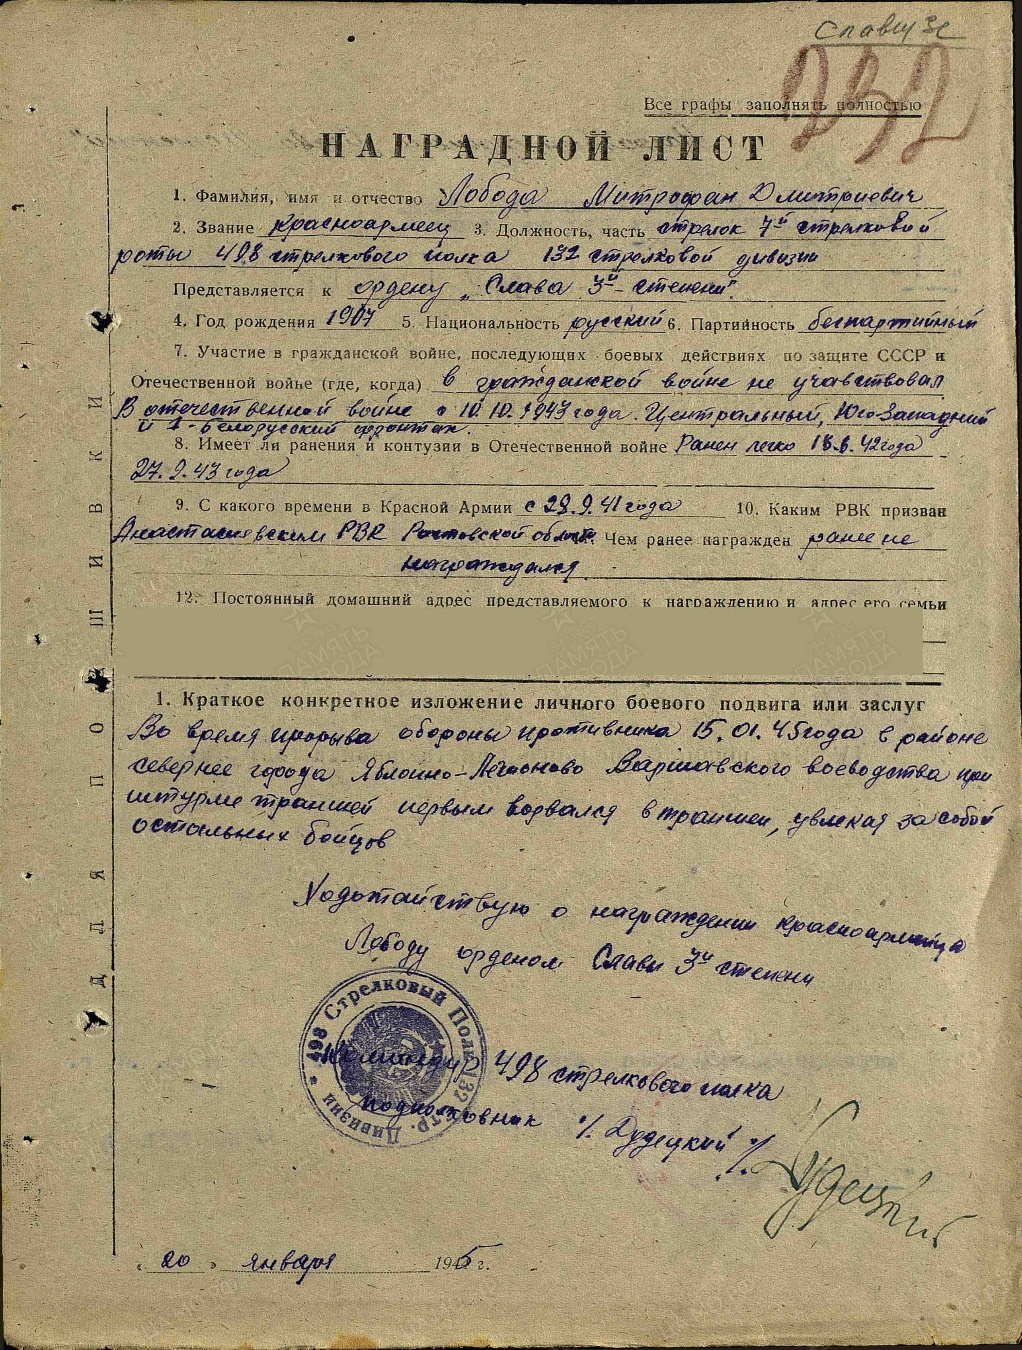 Славы 3с
232
Все графы заполнять полностью
НАГРАДНОЙ ЛИСТ
1. Фамилия, имя и отчество Лобода Митрофан Дмитриевич
2. Звание Красноармеец 3. Должность, часть стрелок 7й стрелковой
роты 498 стрелкового полка 132 стрелковой дивизии
Представляется к ордену „Слава 3й степени".
4. Год рождения 1907 5. Национальность русский 6. Партийность беспартийный
7. Участие в гражданской войне, последующих боевых действиях по защите СССР и
Отечественной войне (где, когда) в гражданской войне не учавствовал
В отечественной войне с 10.10.1943 года. Центральный, Юго-Западний
и 1-Белорусский фронтах.
8. Имеет ли ранения и контузии в Отечественной войне Ранен легко 18.8.42 года
27.9.43 года
9. С какого времени в Красной Армии с 29.9.41 года 10. Каким РВК призван
Анастасиевским РВК Ростовской области. Чем ранее награжден ранее не
награждался.
12. Постоянный домашний адрес представляемого к награждению и адрес его семьи
ДЛЯ ПОДШИВКИ
1. Краткое конкретное изложение личного боевого подвига или заслуг
Во время прорыва обороны противника 15.01.45 года в районе
севернее города Яблонно-Легионово Варшавского воеводства при
штурме траншей первым ворвался в траншеи, увлекая за собой
остальных бойцов
Ходотайствую о награждении красноармейца
Лободу орденом Славы 3й степени
498 Стрелковый Полк 132 стр. Дивизии
Командир 498 стрелкового полка
подполковник /. Дудецкий /.
„20" января 1945 г.